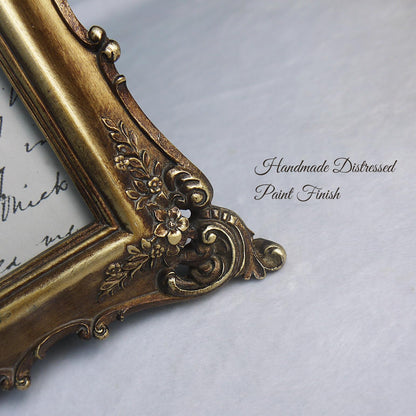 Handmade Distressed
Paint Finish